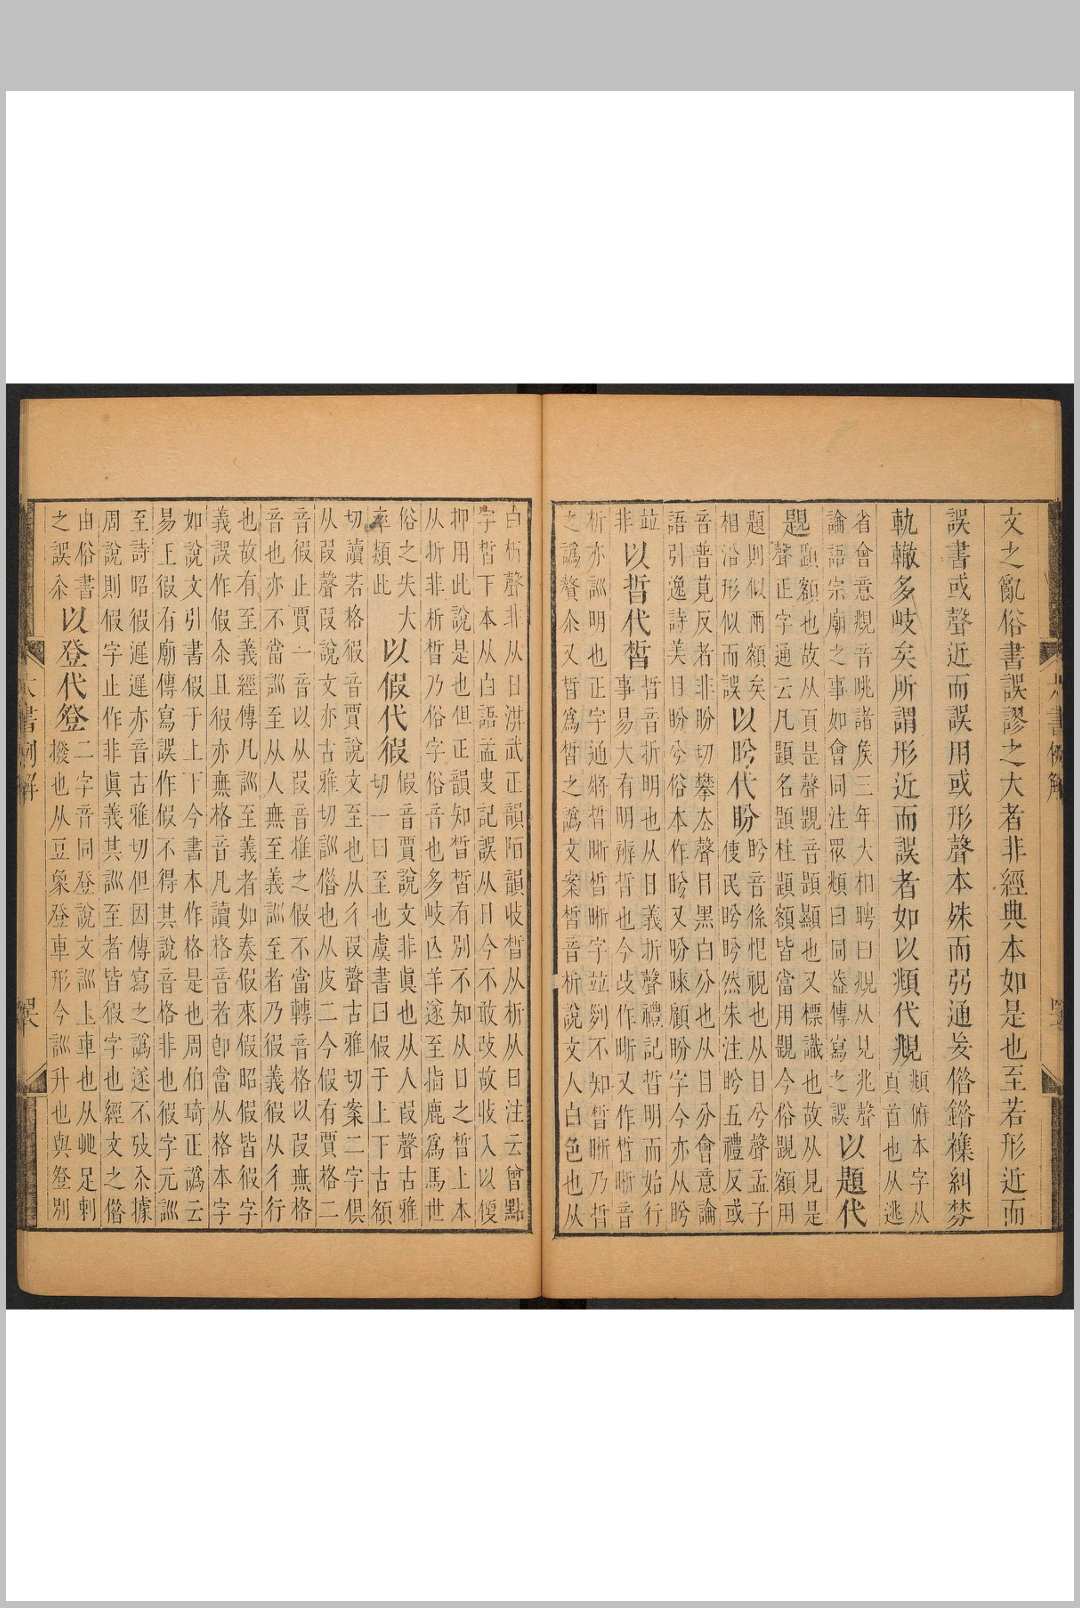 文之亂俗書誤謬之大者非經典本如是也至若形近而
誤書或聲近而誤用或形聲本姝而弜通妄僭鍇襍糾棼
軌轍多岐矣所謂形近而誤者如以頫代覜
頫俯本字从
頁首也从逃
省會意覜音眺諸矦三年大相聘曰覜从見兆聲
論語宗廟之事如會同注眾頫曰同葢傳寫之誤
以題代
題
顯額也故从頁是聲覞音題顯也又標識也故从見是
聲正字通云凡題名題柱題額皆當用題今俗題額用
題則似兩額矣
相沿形似而誤
以盻代盼
盻音係恨視也从目兮聲孟子
使民盻盻然朱注盻五禮反或
音普莧反者非盼切攀去聲目黑白分也从目分會意論
語引逸詩美目盼兮俗本作盻又盼睞顧盼字今亦从盻
竝
非
以晢代皙
晢音折明也从日義折聲禮記晢明而始行
事易大有明辨晢也今或作晣又作晳晰音
析亦訓明也正字通將晢晣皙晰字竝列不知皙晰乃晢
之譌贅尒又晢爲皙之譌文案皙音析說文人白色也从
白析聲非从日洪武正韻陌韻收皙从析从日注云曾點
字皙下本从白語孟叟記誤从日今不敢改故收入以便
抑用此說是也但正韻知皙晳有別不知从日之晳上本
从折非析晳乃俗字俗音也多岐亾羊遂至指鹿爲馬世
俗之失大
率類此
以假代徦
假音賈說文非眞也从人叚聲古雅
切一曰至也虞書曰假于上下古領
切讀若格徦音賈說文至也从彳叚聲古雅切案二字俱
从叚聲叚說文亦古雅切訓僭也从皮二今假有賈格二
音徦止賈一音以从叚音推之假不當轉音格以叚無格
音也亦不當訓至从人無至義訓至者乃徦義徦从彳行
也故有至義經傳凡訓至義者如奏假來假昭假皆徦字
義誤作假尒且徦亦無格音凡讀格音者卽當从格本字
如說文引書假于上下今書本作格是也周伯琦正譌云
易王徦有廟傳寫誤作假不得其說音格非也徦字元訓
至詩昭徦遲遲亦音古雅切但因傳寫之譌遂不攷尒據
周說則假字止作非眞義其訓至者皆徦字也經文之僭
由俗書
之誤尒
以登代豋
二字音同登說文訓上車也从癶足剌
撥也从豆象登車形今訓升也與豋別
六書例解